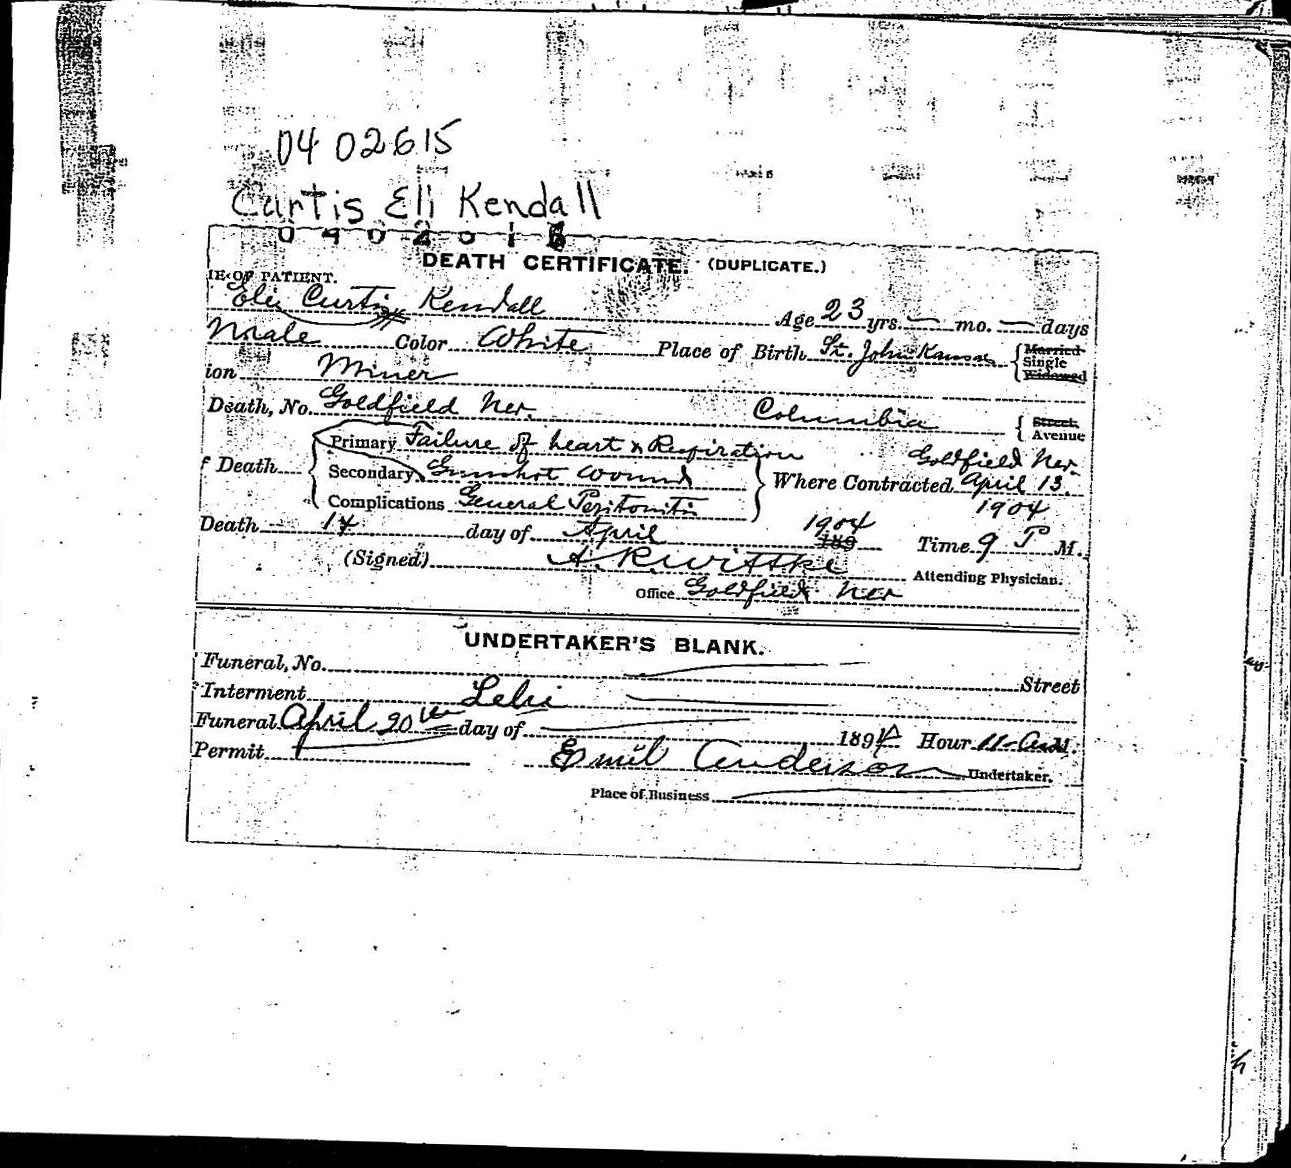 04 02615
Curtis Eli Kendall
DEATH CERTIFICATE. (DUPLICATE.)
IE OF PATIENT.
Eli Curtis Kendall Age 23 yrs. — mo. — days
Male Color White Place of Birth St. John Kansas { Married Single Widowed
ion Miner
Death, No. Goldfield Nev. Columbia { Street Avenue
Primary Failure of heart & Respiration Goldfield Nev.
f Death { Secondary Gunshot wound } Where Contracted April 13.
Complications General Peritonitis 1904
Death 14 day of April 1904 189 Time 9 P M.
(Signed) A. R. Wittke Attending Physician.
Office Goldfield Nev
UNDERTAKER'S BLANK.
Funeral, No. Street
f Interment Lehi
Funeral April 20th day of 1894 Hour 11 A.M.
Permit Emil Anderson Undertaker.
Place of Business